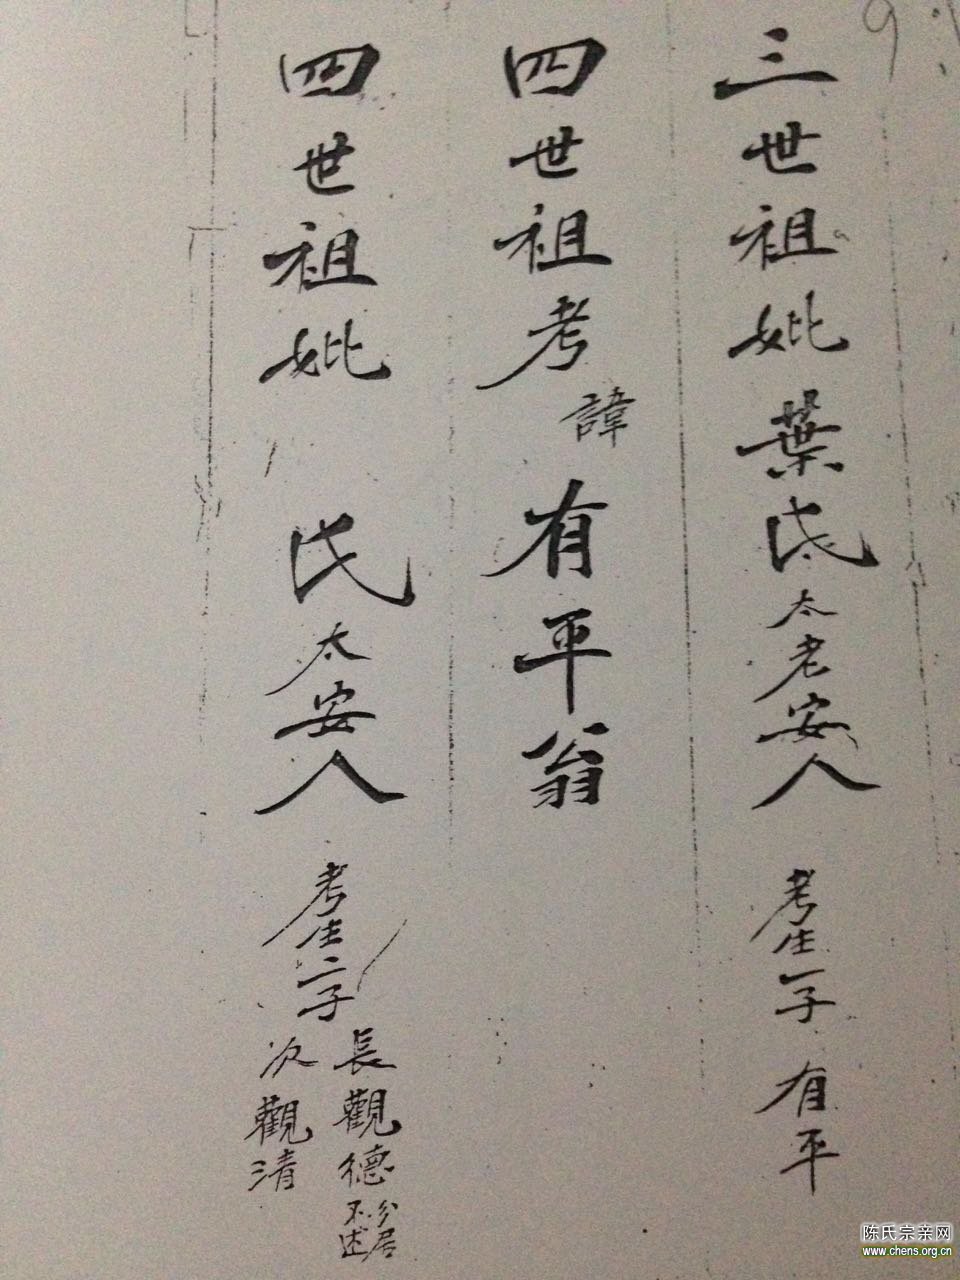 三世祖妣葉氏太老安人 考生一子 有平
四世祖考諱有平翁
四世祖妣 氏太安人 考生二子
長觀德 分居不述
次觀清
陈氏宗亲网
www.chens.org.cn